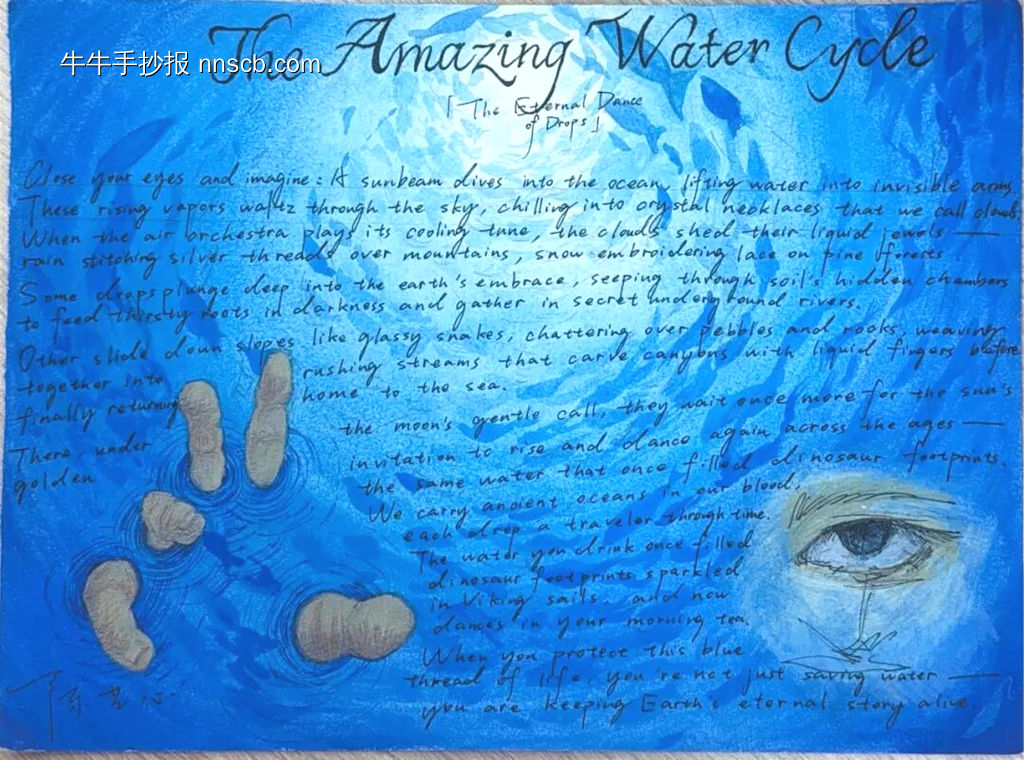 The Amazing Water Cycle
牛牛手抄报 nnscb.com
「The Eternal Dance
of Drops」
Close your eyes and imagine: A sunbeam dives into the ocean, lifting water into invisible arms.
These rising vapors waltz through the sky, chilling into crystal necklaces that we call clouds.
When the air orchestra plays its cooling tune, the clouds shed their liquid jewels —
rain stitching silver threads over mountains, snow embroidering lace on pine forests.
Some drops plunge deep into the earth's embrace, seeping through soil's hidden chambers
to feed thirsty roots in darkness and gather in secret underground rivers.
Other slide down slopes like glassy snakes, chattering over pebbles and rocks, weaving
together into rushing streams that carve canyons with liquid fingers before
finally returning home to the sea.
There, under the moon's gentle call, they wait once more for the sun's
golden invitation to rise and dance again across the ages —
the same water that once filled dinosaur footprints.
We carry ancient oceans in our blood,
each drop a traveler through time.
The water you drink once filled
dinosaur footprints sparkled
in Viking sails, and now
dances in your morning tea.
When you protect this blue
thread of life, you're not just saving water —
you are keeping Earth's eternal story alive.